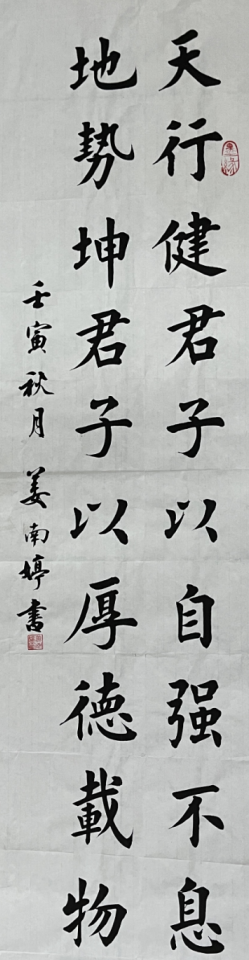 天行健君子以自强不息
地勢坤君子以厚德載物
壬寅秋月 姜南婷書